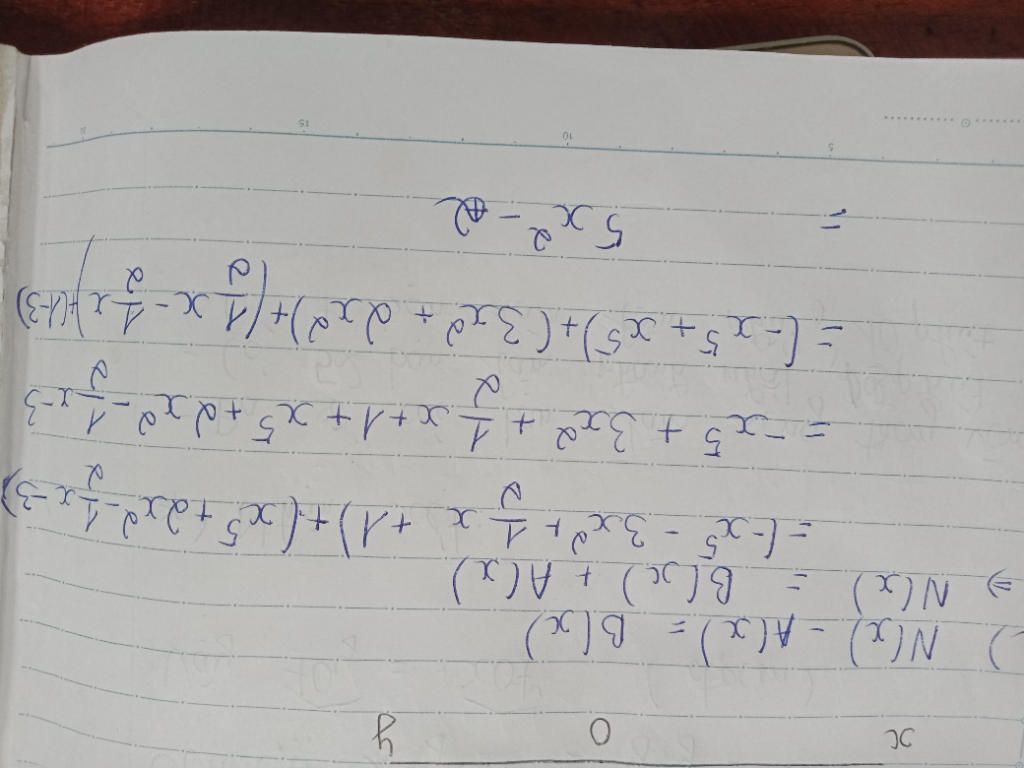 x O y
) N(x) - A(x) = B(x)
⇒ N(x) = B(x) + A(x)
= (-x⁵ - 3x² + 1/2 x + 1) + (x⁵ + 2x² - 1/2 x - 3)
= -x⁵ + 3x² + 1/2 x + 1 + x⁵ + 2x² - 1/2 x - 3
= (-x⁵ + x⁵) + (3x² + 2x²) + (1/2 x - 1/2 x) + (1-3)
= 5x² - 2
5 10 15